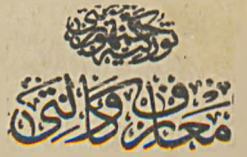 توركیه جمهوریتی
معارف وكالتی